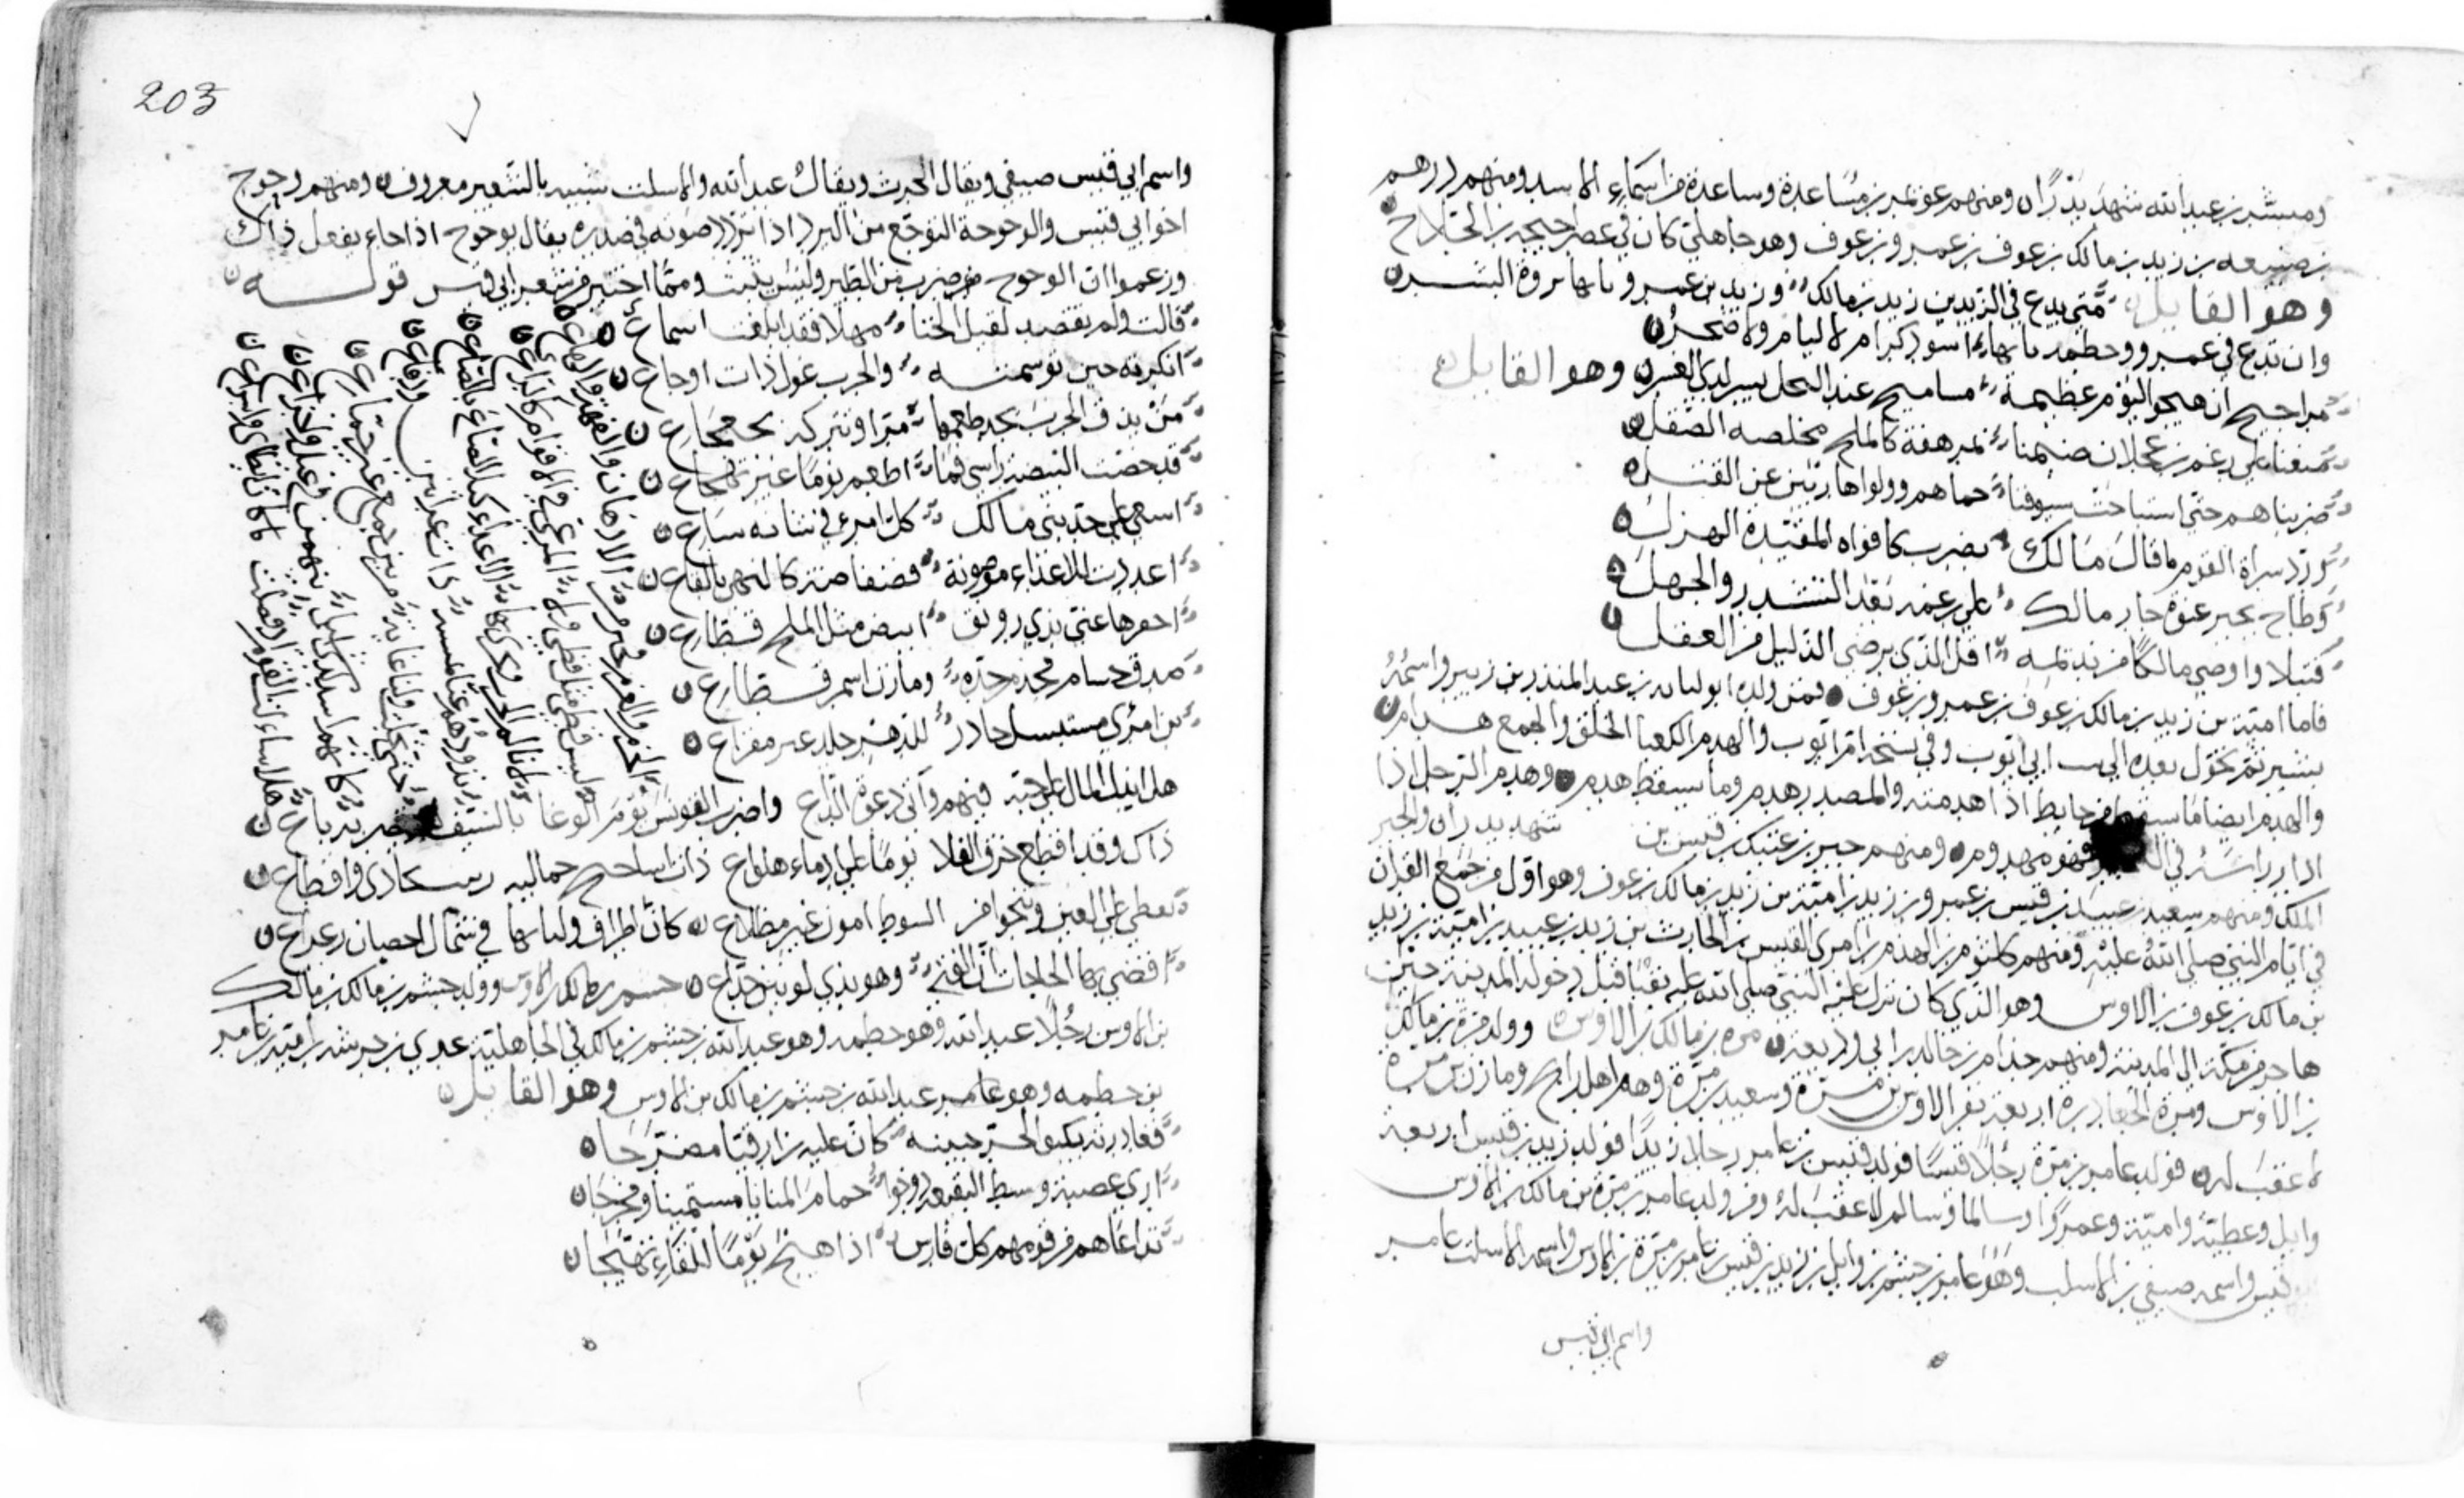 ومبشر بن عبد الله شهد بدرا ومنهم عويمر بن مساعدة وساعدة من اسماء الاسد ومنهم درهم
بن ضبيعه بن زيد بن مالك بن عوف بن عمرو بن عوف وهو جاهلي كان في عصر احيحه بن الجلاح
وهو القايل متى يدع في الزيدين زيد بن مالك وزيد بن عمرو تاتها عروة البشر
وان تدع في عمرو وحطمه تاتها اسود كرام لا ليام ولا ضجر
مراجيح ان هيجوا ليوم عظيمة مساميح عند المحل يسر لدى العسر وهو القايل
منعنا على رغم بن عجلان ضيمنا بمرهفة كالملح مخلصه الصقل
ضربناهم حتى استباحت سيوفنا حماهم وولوا هاربين عن القتل
ورد سراة القوم ما قال مالك بضرب كافواه المقيدة الهزل
وطاح بجير عنوة جار مالك على رغمه بعد التشدر والجهل
قتيلا واوصى مالكا من نديمه اقل الذي يرضى الذليل من العقل
فاما امية بن زيد بن مالك بن عوف بن عمرو بن عوف فمن ولده ابو لبابه بن عبد المنذر بن زبير واسمه
بشير ثم تحول بعده الى بيت ابي ايوب وفي نسخه ام ايوب والهدم الكعبا الخلق والجمع هدام
والهدم ايضا ما سقط من حايط اذا هدمته والمصدر هدم وما سقط هدم وهدم الرجل اذا
اذا دار راسه في البحر فهو مهدوم ومنهم جبير بن عتيك بن قيس بن شهد بدرا والجبر
الملك ومنهم سعيد بن عبيد بن قيس بن عمرو بن زيد بن امية بن زيد بن مالك بن عوف وهو اول من جمع القران
في ايام النبي صلى الله عليه ومنهم كلثوم بن الهدم بن امرى القيس بن الحارث بن زيد بن عبيد بن امية بن زيد
بن مالك بن عوف بن الاوس وهو الذي كان نزل عليه النبي صلى الله عليه بقبا قبل دخوله المدينة حين
هاجر من مكة الى المدينة ومنهم جذام بن خالد بن ابي وديعة مره بن مالك بن الاوس وولد مرة بن مالك
بن الاوس ومرة الجعادرة اربعة نفر الاوس بن مرة وسعيد بن مرة وهم اهل رابح ومازن بن مرة
لا عقب له فولد عامر بن مرة رجلا قيسا فولد قيس بن عامر رجلا زيدا فولد زيد بن قيس اربعة
وايل وعطية وامية وعمرا وسالما وسالم لا عقب له ومن ولد عامر بن مرة بن مالك بن الاوس
قيس واسمه صيفي بن الاسلت وهو عامر بن جشم بن وايل بن زيد بن قيس بن عامر بن مرة بن الاوس واسم الاسلت عامر
واسم ابي قيس
203
واسم ابي قيس صيفي ويقال الحرث ويقال عبد الله والاسلت شبيه بالشعير معروف ومنهم وحوح
اخو ابي قيس والوحوحة التوجع من البرد اذا تردد صوته في صدره يقال يوحوح اذا جاء يفعل ذاك
وزعموا ان الوحوح ضرب من الطير وليس بثبت ومما اختير من شعر ابي قيس قوله
قالت ولم تقصد لقيل الخنا مهلا فقد ابلغت اسماع
انكرته حين توسمته والحرب غول ذات اوجاع
من يذق الحرب يجد طعمها مرا وتتركه بجعجاع
قد حصت البيضة راسي فما اطعم نوما غير تهجاع
اسعى على حي بني مالك كل امرئ في شانه ساع
اعددت للاعداء موضونة فضفاضة كالنهي بالقاع
احفزها عني بذي رونق ابيض مثل الملح قطاع
صدق حسام محذم حده ومارن اسمر قطاع
بز امرئ مستبسل حاذر للدهر جلد غير مجزاع
الحزم والعزم خير من الادهان والفهة والهاع
ليس قطا مثل قطي ولا المرعي في الاقوام كالراعي
لا نالم الحرب ونجزي بها الاعداء كيل الصاع بالصاع
نذودهم عنا بمستنة ذات عرانين ودفاع
كانهم اسد لدى اشبل ينهتن في غيل واجزاع
حتى تجلت ولنا غاية من بين جمع غير جماع
هلا ساءلت القوم اذ قلصت ما كان ابطاي واسراعي
هل ابذل المال على حبه فيهم وآتي دعوة الداع واضرب القونس يوم الوغا بالسيف لم يقصر به باع
ذاك وقد اقطع خرق الفلا يوما على ادماء هلواع ذات اساهيج جماليه بحاري واقطاع
تعطي على الاين وتنجو من السوط امون غير مظلاع كان اطراف ولياتها في شمال حصان زعزاع
اقضي بها الحاجات ان الفتى وهو بذي لونين خداع جشم بن مالك بن الاوس وولد جشم بن مالك بن مالك
بن الاوس رجلا عبد الله وهو حطمه وهو عبد الله بن جشم بن مالك في الجاهلية عدي بن خرشه بن امية بن عامر
بن حطمه وهو عامر بن عبد الله بن جشم بن مالك بن الاوس وهو القايل
فغادرته يكبو لحر جبينه كان عليه زارقيا مضرحا
ارى عصبة وسط البقيع حمام المنايا مستميتا ومخرجا
تداعاهم من قومهم كل فارس اذا هيج يوما للقاء تهيجا